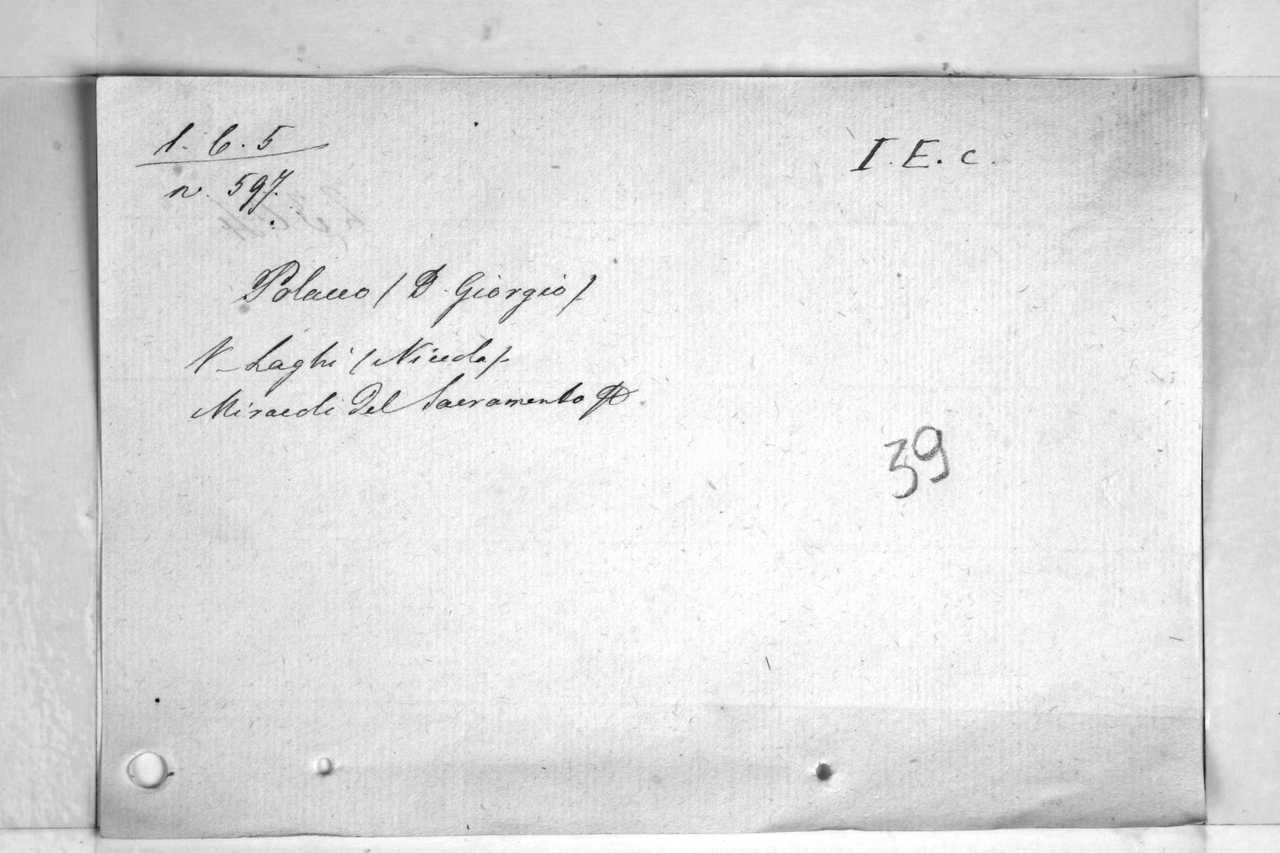 1. 6. 5
I. E. c.
n. 597.
Polacco / D. Giorgio /.
V. Laghi / Nicola /.
Miracoli del Sacramento
39